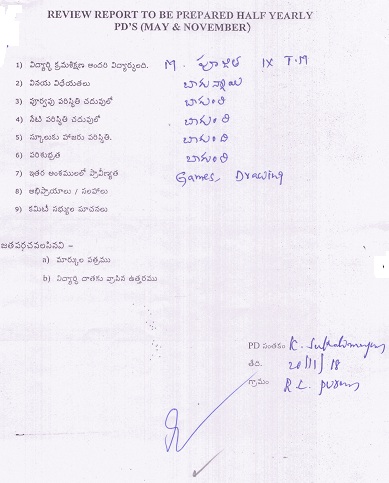 REVIEW REPORT TO BE PREPARED HALF YEARLY
PD'S (MAY & NOVEMBER)
1) విద్యార్థి క్రమశిక్షణ అందరి విద్యార్థులది. M. పూజిత IX T.M
2) వినయ విధేయతలు బాగున్నాయి
3) పూర్వపు పరిస్థితి చదువులో బాగుంది
4) నేటి పరిస్థితి చదువులో బాగుంది
5) స్కూలుకు హాజరు పరిస్థితి. బాగుంది
6) పరిశుభ్రత బాగుంది
7) ఇతర అంశములలో ప్రావీణ్యత Games, Drawing
8) అభిప్రాయాలు / సలహాలు
9) కమిటీ సభ్యుల సూచనలు
జతపర్చవలసినవి –
a) మార్కుల పత్రము
b) విద్యార్థి దాతకు వ్రాసిన ఉత్తరము
PD సంతకం K.
తేది. 20/11/18
గ్రామం R.L. Puram